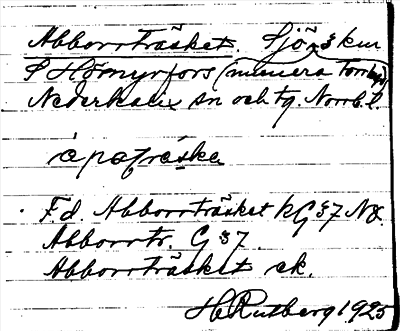 Abborrträsket. Sjö, 3 km
S Hömyrfors (numera Tomhyd)
Nederkalix sn och tg. Norrb. l.
ápotræska
F.d. Abborrträsket kG 37 NO.
Abborrtr. G 37.
Abborrträsket ek.
H Rutberg 1925